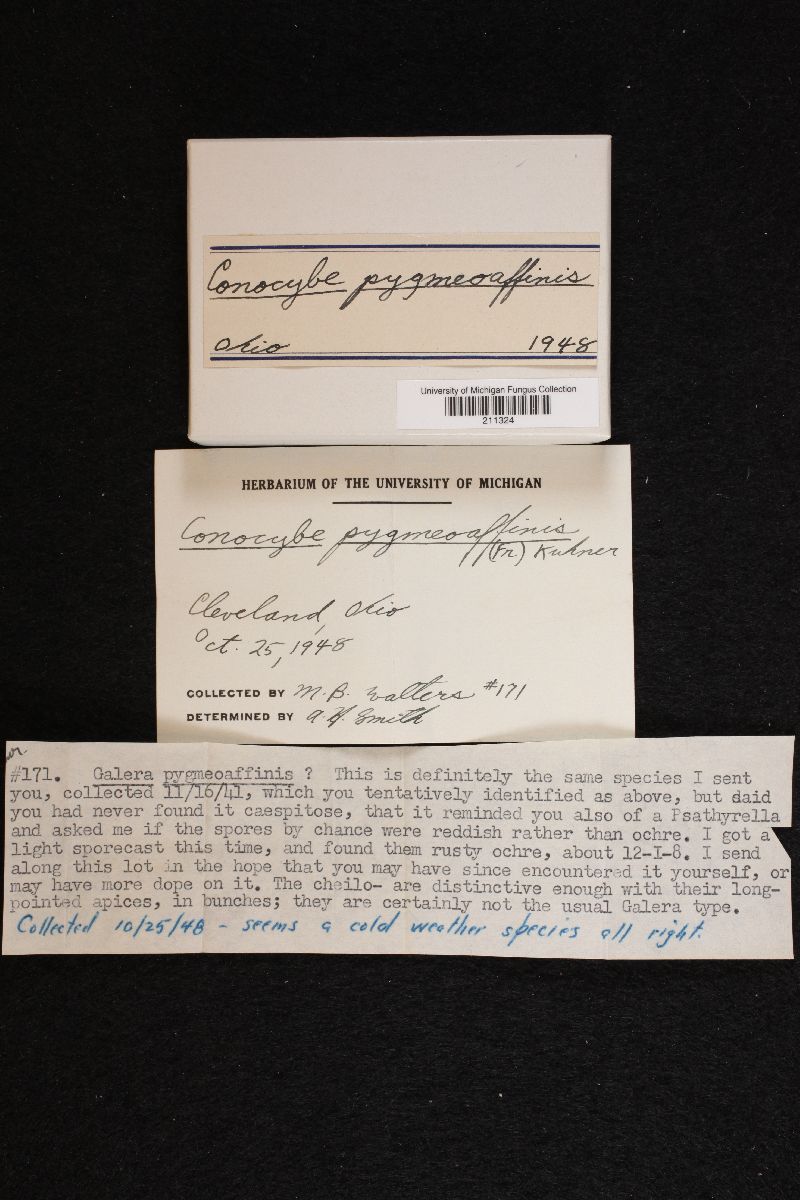 Conocybe pygmeoaffinis
Ohio 1948
University of Michigan Fungus Collection
211324
HERBARIUM OF THE UNIVERSITY OF MICHIGAN
Conocybe pygmeoaffinis
(Fr.) Kuhner
Cleveland, Ohio
Oct. 25, 1948
COLLECTED BY M.B. Walters #171
DETERMINED BY A.H. Smith
#171. Galera pygmeoaffinis ? This is definitely the same species I sent
you, collected 11/16/41, which you tentatively identified as above, but said
you had never found it caespitose, that it reminded you also of a Psathyrella
and asked me if the spores by chance were reddish rather than ochre. I got a
light sporecast this time, and found them rusty ochre, about 12-I-8. I send
along this lot in the hope that you may have since encountered it yourself, or
may have more dope on it. The cheilo- are distinctive enough with their long-
pointed apices, in bunches; they are certainly not the usual Galera type.
Collected 10/25/48 - seems a cold weather species all right.